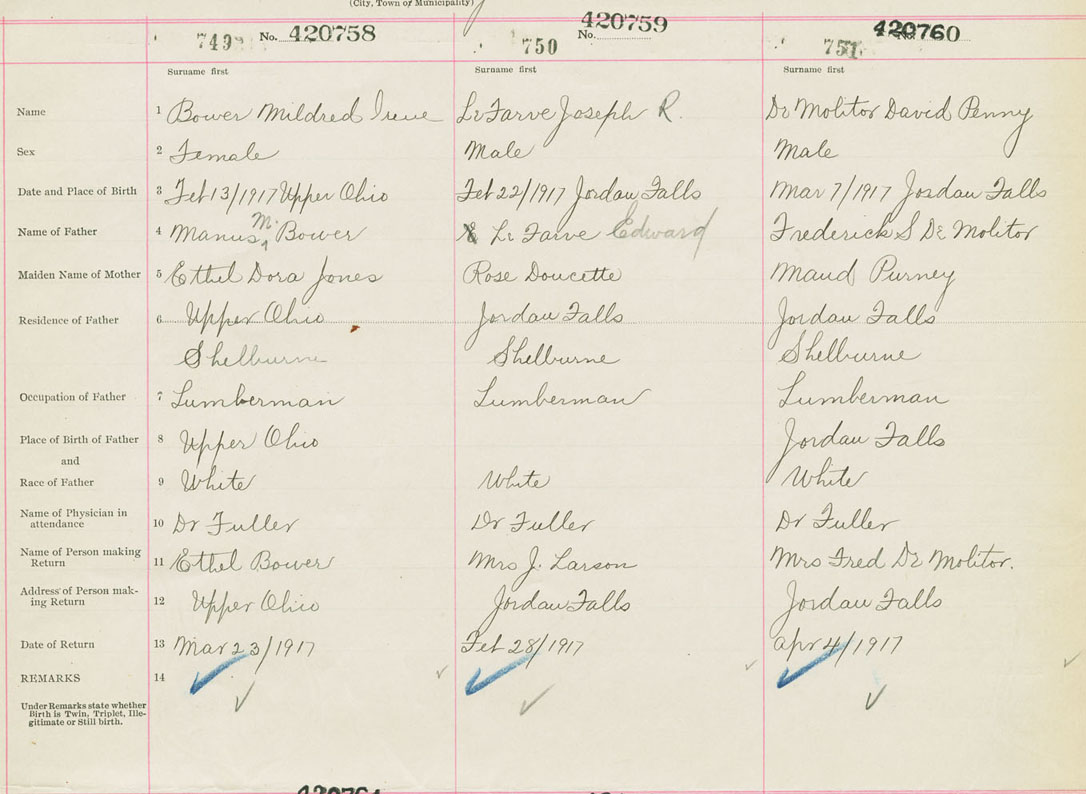 (City, Town or Municipality)
749 No. 420758
750 No. 420759
751 No. 420760
Surname first Surname first Surname first
Name 1 Bower Mildred Irene LeFarve Joseph R. De Molitor David Penny
Sex 2 Female Male Male
Date and Place of Birth 3 Feb 13/1917 Upper Ohio Feb 22/1917 Jordan Falls Mar 7/1917 Jordan Falls
M.
Name of Father 4 Manus Bower Le Farve Edward Frederick S De Molitor
Maiden Name of Mother 5 Ethel Dora Jones Rose Doucette Maud Purney
Residence of Father 6 Upper Ohio Jordan Falls Jordan Falls
Shelburne Shelburne Shelburne
Occupation of Father 7 Lumberman Lumberman Lumberman
Place of Birth of Father 8 Upper Ohio Jordan Falls
and
Race of Father 9 White White White
Name of Physician in
attendance 10 Dr Fuller Dr Fuller Dr Fuller
Name of Person making
Return 11 Ethel Bower Mrs J. Larson Mrs Fred De Molitor.
Address of Person mak-
ing Return 12 Upper Ohio Jordan Falls Jordan Falls
Date of Return 13 Mar 23/1917 Feb 28/1917 Apr 4/1917
REMARKS 14
Under Remarks state whether
Birth is Twin, Triplet, Ille-
gitimate or Still birth.